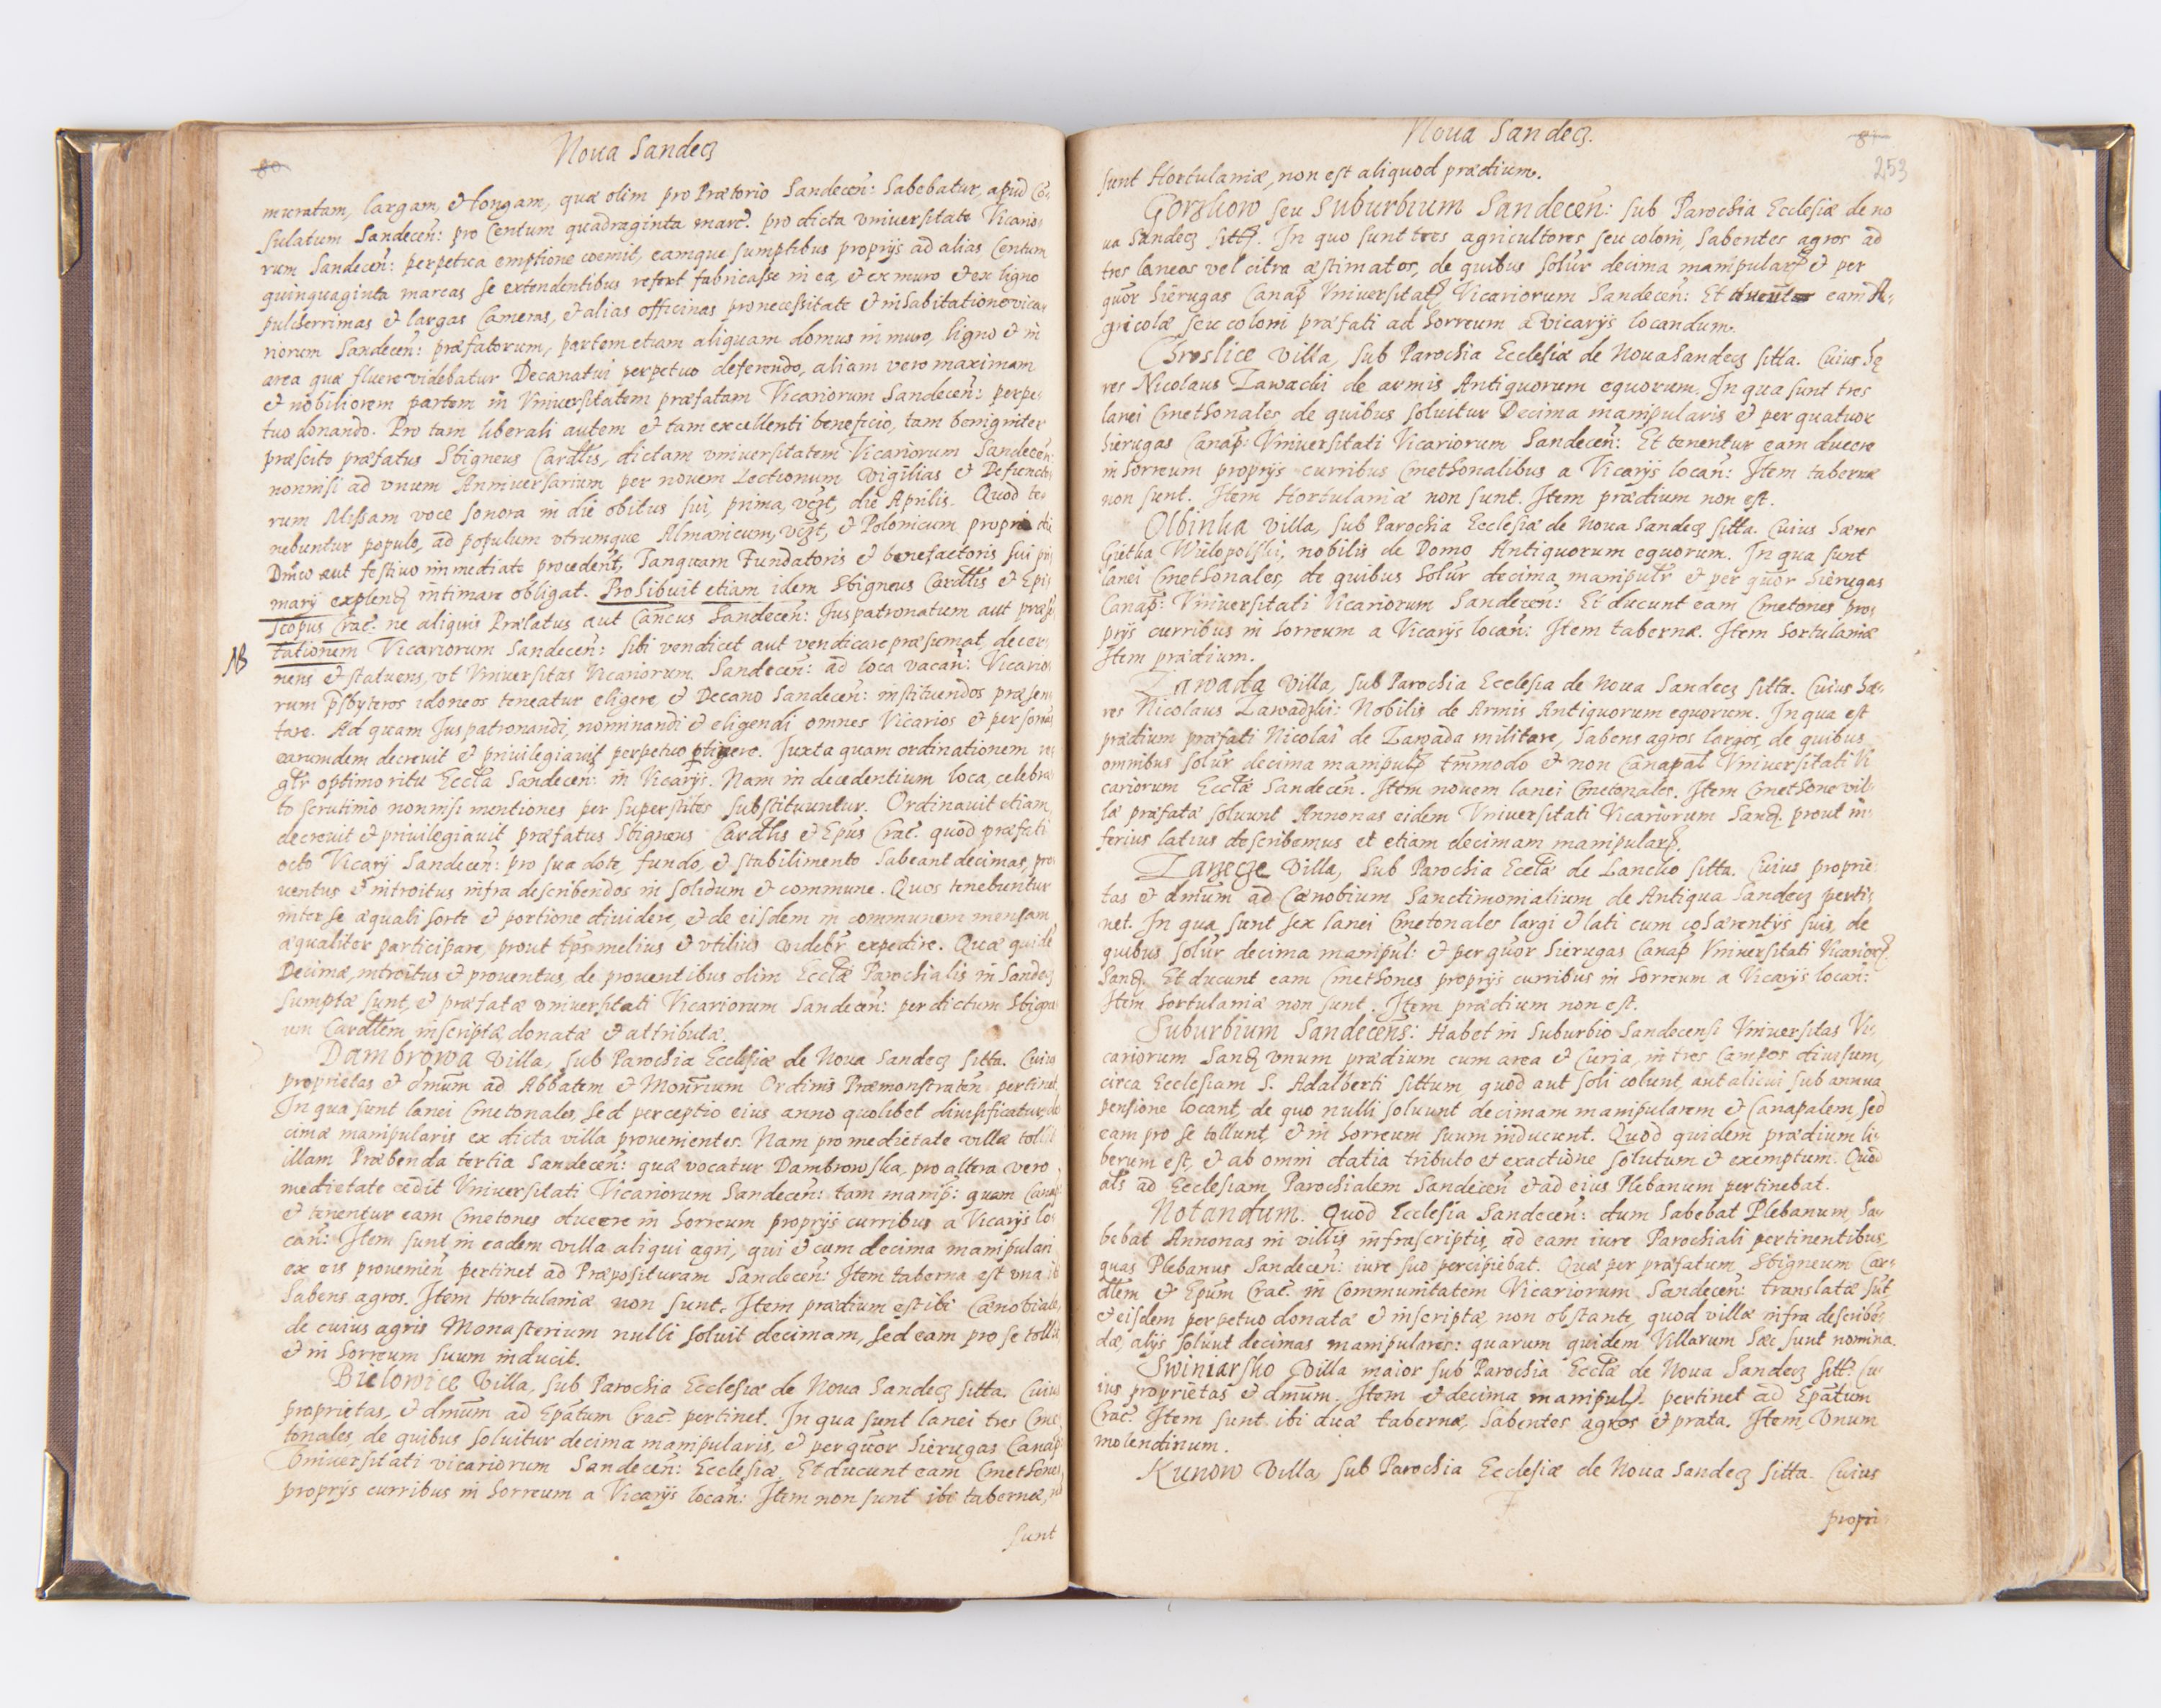 80
Noua Sandecz
muratam, largam, et longam, quæ olim pro Prætorio Sandeceñ: habebatur, apud Coñ
sulatum Sandeceñ: pro Centum quadraginta marc: pro dicta vniuersitate Vicario
rum Sandeceñ: perpetua emptione coemit, eamque sumptibus proprijs ad alias Centum
quinquaginta marcas se extendentibus refert fabricasse in ea, et ex muro et ex ligno
pulcherrimas et largas Cameras, et alias officinas pro necessitate et inhabitatione vica,
riorum Sandeceñ: præfatorum, partem etiam aliquam domus in muro, ligno et in
area quæ fluere videbatur Decanatui perpetuo deferendo, aliam vero maximam
et nobiliorem partem in Vniuersitatem præfatam Vicariorum Sandeceñ: perpe,
tuo donando. Pro tam liberali autem et tam excellenti beneficio, tam benigniter
præscito præfatus Sbigneus Cardlis, dictam vniuersitatem Vicariorum Sandeceñ:
nonnisi ad vnum Anniuersarium per nouem Lectionum Vigilias et Defuncto
rum Missam voce sonora in die obitus sui, prima, vczt, die Aprilis. Quod te
nebuntur populo, ad populum vtrumque Almanicum, vczt, et Polonicum proprio die
Dñico aut festiuo immediate procedent, Tanquam Fundatoris et benefactoris sui pri
marij explend intimare obligat. Prohibuit etiam idem Sbigneus Cardlis et Epi,
scopus Crac: ne aliquis Prælatus aut Cañcus Sandeceñ: Juspatronatum aut præse
NB
tationem Vicariorum Sandeceñ: sibi vendicet aut vendicare præsumat, decer
nens et statuens, vt Vniuersitas Vicariorum Sandeceñ: ad loca vacañ: Vicario
rum psbyteros idoneos teneatur eligere, et Decano Sandeceñ: instituendos præsen
tare. Ad quam Juspatronandi, nominandi et eligendi omnes Vicarios et personas
earumdem decreuit et priuilegiauit perpetuo ptinere. Juxta quam ordinationem re
gtr optimo ritu Eccla Sandeceñ: in Vicarijs. Nam in decedentium loca, celebra
to scrutinio nonnisi mentiones per superstites substituuntur. Ordinauit etiam
decreuit et priuilegiauit præfatus Sbigneus Cardlis et Epus Crac: quod præfati
octo Vicarij Sandeceñ: pro sua dote, fundo, et stabilimento habeant decimas, pro
uentus et introitus infra describendos in solidum et commune. Quos tenebuntur
inter se æquali sorte et portione diuidere, et de eisdem in communem mensam
æqualiter participare, prout ips melius et vtilius videbr expedire. Quæ quidẽ
Decimæ, introitus et prouentus, de prouentibus olim Ecclæ Parochialis in Sandecz
sumptæ sunt, et præfatæ vniuersitati Vicariorum Sandeceñ: per dictum Sbigne
um Cardlem inscriptæ, donatæ et attributæ.
Dambrowa villa, sub Parochia Ecclesiæ de Noua Sandecz sitta. Cuius
proprietas et dmum ad Abbatem et Monrium Ordinis Præmonstraten pertinet.
In qua sunt lanei Cmetonales, sed perceptio eius anno quolibet diuisificatur de
cimæ manipularis ex dicta villa prouenientes. Nam pro medietate villæ tollit
illam Præbenda tertia Sandeceñ: quæ vocatur Dambrowska, pro altera vero
medietate cedit Vniuersitati Vicariorum Sandeceñ: tam manip: quam Canap
et tenentur eam Cmetones ducere in horreum proprijs curribus a Vicarijs lo
cañ: Item sunt in eadem villa aliqui agri, qui et cum decima manipulari
ex eis prouenieñ pertinet ad Præposituram Sandeceñ: Item taberna est vna ibi
habens agros. Item Hortulaniæ non sunt. Item prædium est ibi Cænobiale,
de cuius agris Monasterium nulli soluit decimam, sed eam pro se tollit
et in horreum suum inducit.
Bielowice Villa, sub Parochia Ecclesiæ de Noua Sandecz sitta. Cuius
proprietas, et dmum ad Epatum Crac: pertinet. In qua sunt lanei tres Cme
tonales, de quibus soluitur decima manipularis, et per quor hierugas Canap:
Vniuersitati vicariorum Sandeceñ: Ecclesiæ. Et ducunt eam Cmethones
proprijs curribus in horreum a Vicarijs locañ: Item non sunt ibi tabernæ, nō
sunt
Noua Sandecz.
81
253
sunt Hortulaniæ, non est aliquod prædium.
Gorzkow seu Suburbium Sandeceñ: sub Parochia Ecclesiæ de no
ua Sandecz sitt. In quo sunt tres agricultores seu coloni, habentes agros ad
tres laneos vel citra æstimatos, de quibus solur decima manipular et per
quor hierugas Canap Vniuersitat Vicariorum Sandeceñ: Et eam A,
gricolæ seu coloni præfati ad horreum a vicarijs locandum.
Chroslice villa, sub Parochia Ecclesiæ de Noua Sandecz sitta. Cuius hę
res Nicolaus Zawachi de armis Antiquorum equorum. In qua sunt tres
lanei Cmethonales de quibus soluitur Decima manipularis et per quatuor
hierugas Canap: Vniuersitati Vicariorum Sandeceñ: Et tenentur eam ducere
in horreum proprijs curribus Cmethonalibus a Vicarijs locañ: Item tabernæ
non sunt. Item Hortulaniæ non sunt. Item prædium non est.
Olbinka villa, sub Parochia Ecclesiæ de Noua Sandecz sitta. Cuius hæres
Gietka Wielopolski, nobilis de Domo Antiquorum equorum. In qua sunt
lanei Cmethonales, de quibus solur decima manipulr et per quor hierugas
Canap: Vniuersitati Vicariorum Sandeceñ: Et ducunt eam Cmetones pro,
prijs curribus in horreum a Vicarijs locañ: Item tabernæ. Item hortulaniæ
Item prædium.
Zawada Villa, sub Parochia Ecclesia de Noua Sandecz sitta. Cuius hæ,
res Nicolaus Zawadzki: Nobilis de Armis Antiquorum equorum. In qua est
prædium præfati Nicolai de Zawada militare, habens agros largos, de quibus
omnibus solur decima manipul tmmodo et non Canapal Vniuersitati Vi
cariorum Ecclæ Sandeceñ. Item nouem lanei Cmetonales. Item Cmethone vil
læ præfatæ soluunt Annonas eidem Vniuersitati Vicariorum Sand prout in,
ferius latius describemus et etiam decimam manipular.
Zawada Villa, Sub Parochia Ecclæ de Lancko sitta. Cuius proprie
tas et dmum ad Cænobium Sanctimonialium de Antiqua Sandecz perti,
net. In qua sunt sex lanei Cmetonales largi et lati cum cohærentijs suis, de
quibus solur decima manipul: et per quor hierugas Canap Vniuersitati Vicarior
Sand. Et ducunt eam Cmethones proprijs curribus in horreum a Vicarijs locañ:
Item hortulaniæ non sunt. Item prædium non est.
Suburbium Sandecens: Habet in Suburbio Sandecensi Vniuersitas Vi,
cariorum Sand vnum prædium cum area et Curia, in tres campos diuisum,
circa Ecclesiam S. Adalberti sittum, quod aut soli colunt, aut alicui sub annua
pensione locant, de quo nulli soluunt decimam manipularem et Canapalem sed
eam pro se tollunt, et in horreum suum inducunt. Quod quidem prædium li,
berum est, et ab omni datia tributo et exactione solutum et exemptum. Quod
als ad Ecclesiam Parochialem Sandeceñ et ad eius Plebanum pertinebat.
Notandum. Quod Ecclesia Sandeceñ: dum habebat Plebanum, ha,
bebat Annonas in villis infrascriptis, ad eam iure Parochiali pertinentibus,
quas Plebanus Sandeceñ: iure suo percipiebat. Quæ per præfatum Sbigneum Car,
dlem et Epum Crac: in Communitatem Vicariorum Sandeceñ: translatæ sūt
et eisdem perpetuo donatæ et inscriptæ, non obstante, quod villæ infra describē,
dæ, alijs soluūt decimas manipulares: quarum quidem Villarum hæc sunt nomina.
Swiniarsko Villa maior sub Parochia Ecclæ de Noua Sandecz sitt: Cu
ius proprietas et dmum. Item et decima manipul. pertinet ad Epatum
Crac: Item sunt ibi duæ tabernæ, habentes agros et prata. Item, vnum
molendinum.
Kunow Villa, sub Parochia Ecclesiæ de Noua Sandecz sitta. Cuius
propri